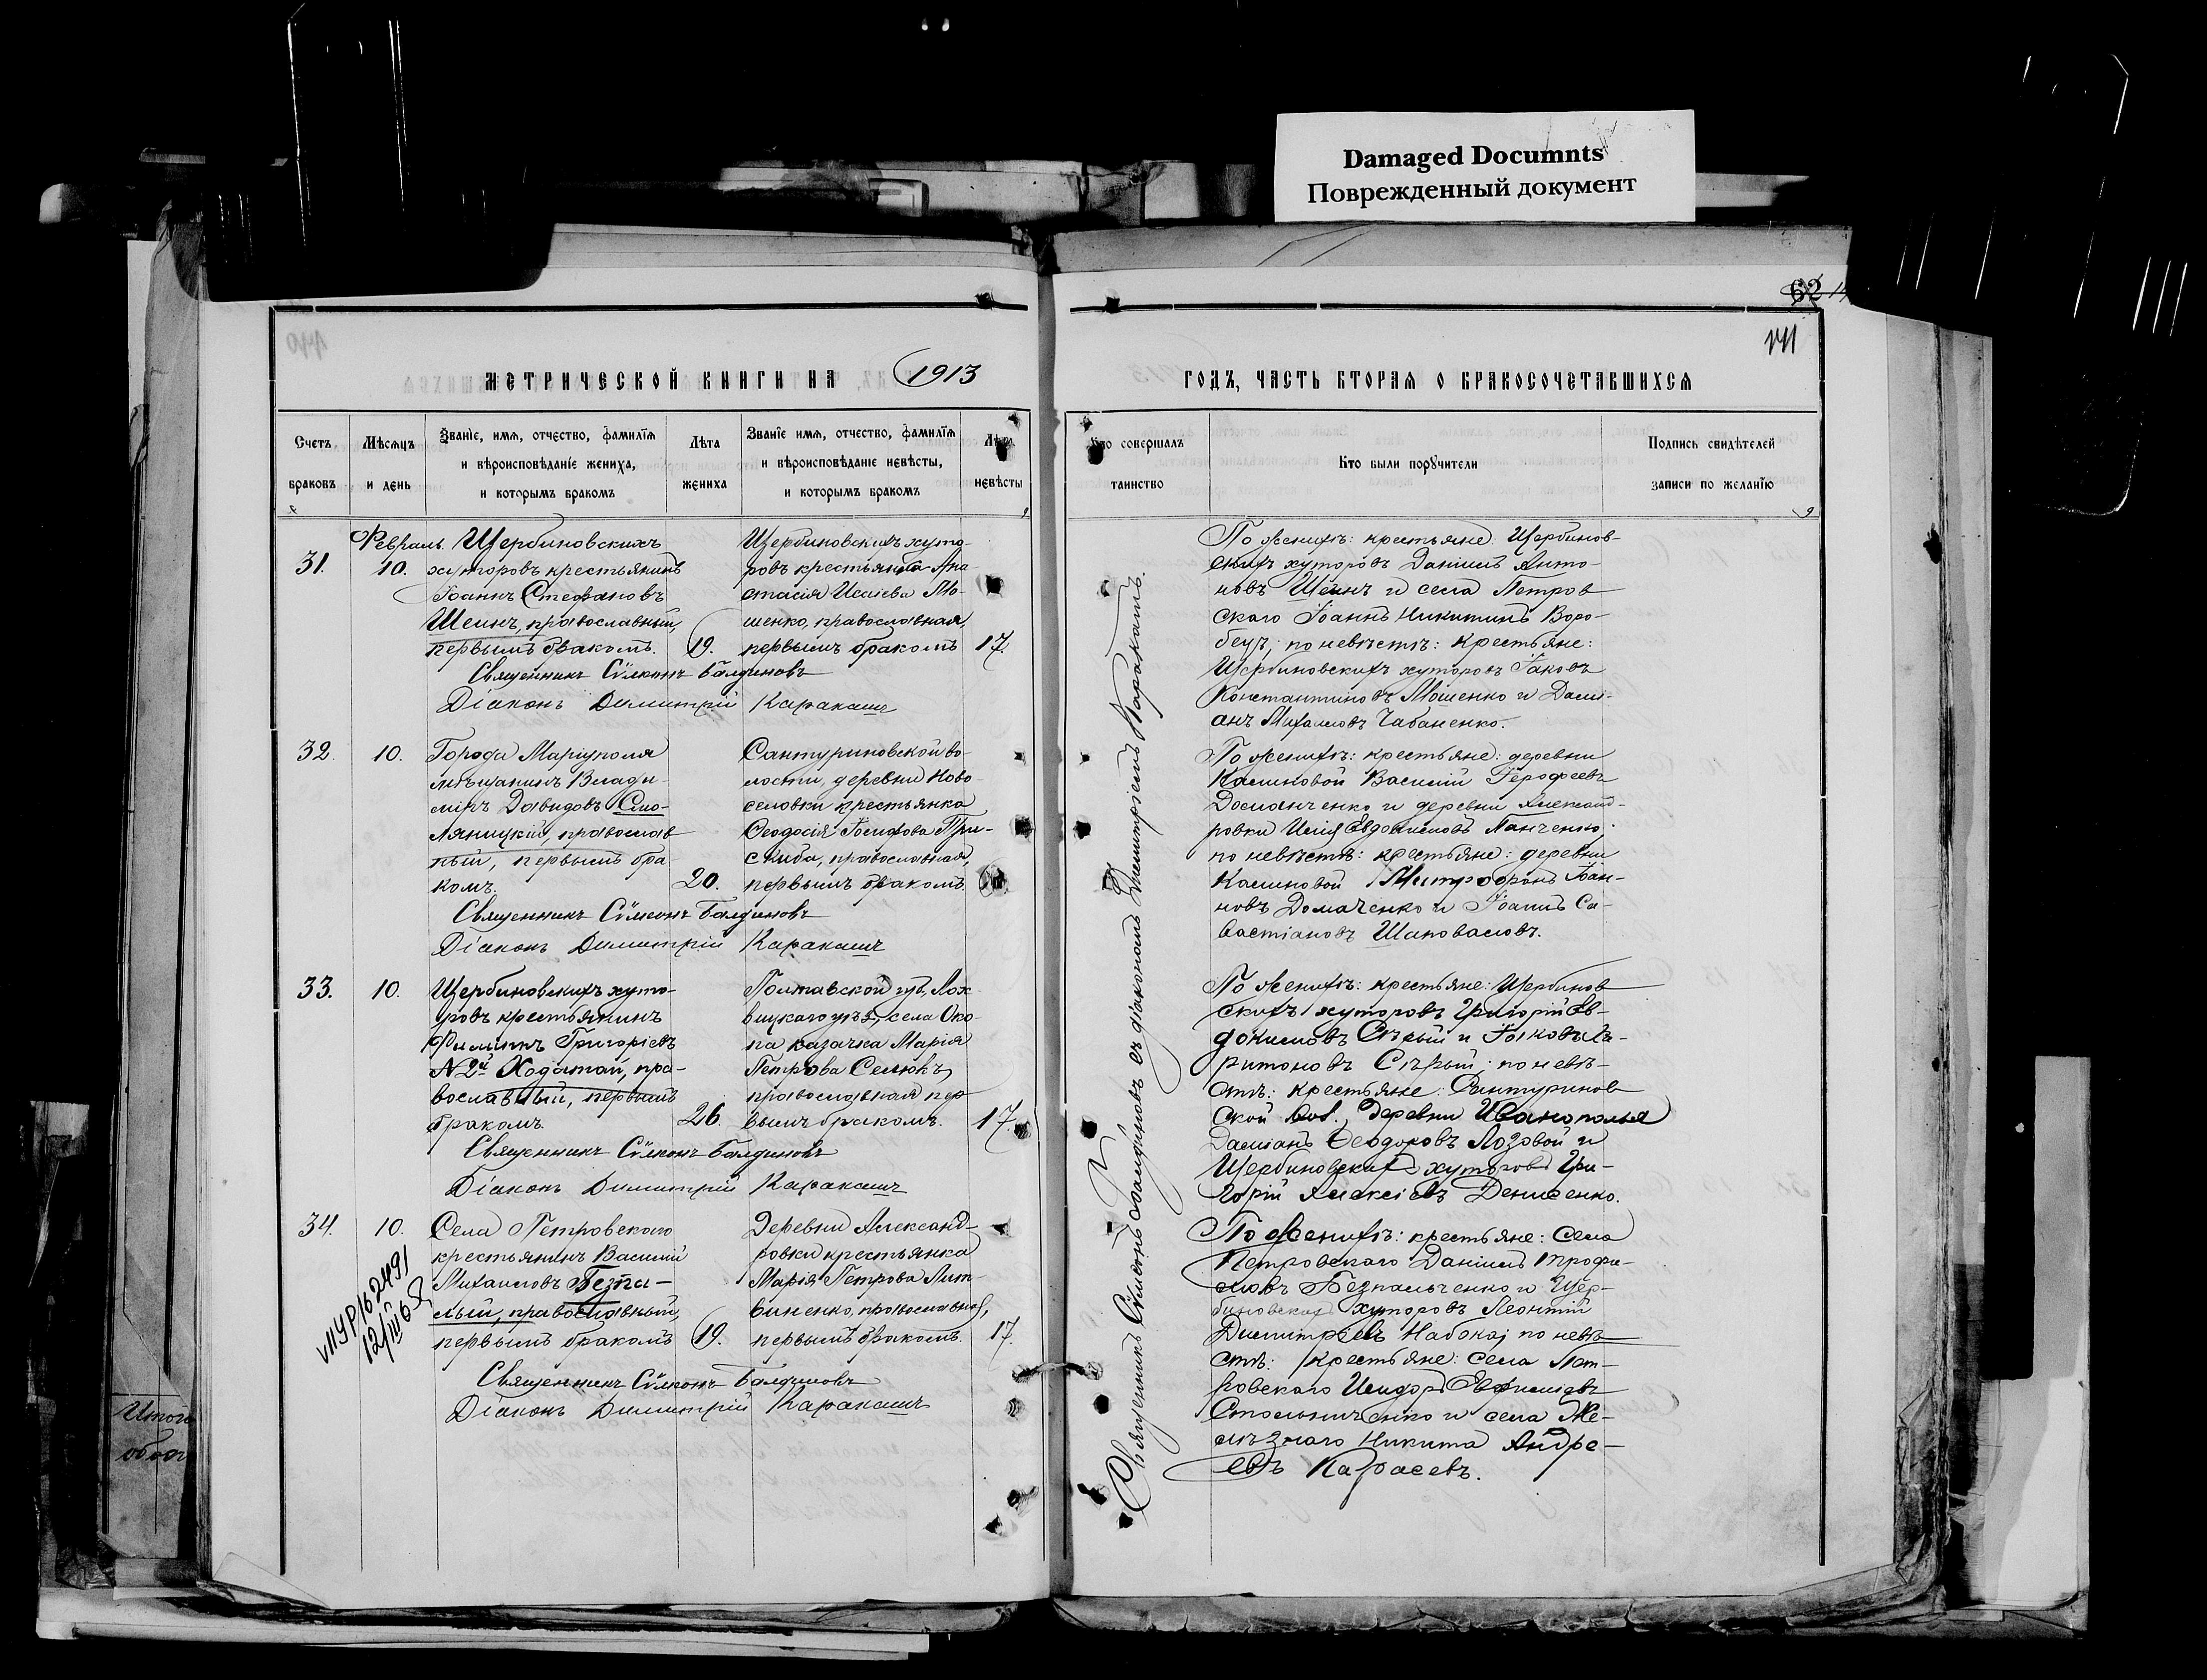 Damaged Documnts
Поврежденный документ
62
141
МЕТРИЧЕСКОЙ КНИГИ НА 1913
ГОДЪ, ЧАСТЬ ВТОРАЯ О БРАКОСОЧЕТАВШИХСЯ
Счетъ браковъ
Мѣсяцъ и день
Званіе, имя, отчество, фамилія
и вѣроисповѣданіе жениха,
и которымъ бракомъ
Лѣта жениха
Званіе имя, отчество, фамилія
и вѣроисповѣданіе невѣсты,
и которымъ бракомъ
Лѣта невѣсты
Кто совершалъ таинство
Кто были порꙋчители
Подпись свидѣтелей
записи по желанію
31.
Февраль
10.
Щербиновскихъ
хуторовъ крестьянинъ
Іоаннъ Стефановъ
Шеинъ, православный,
первымъ бракомъ.
19.
Щербиновскихъ хуто-
ровъ крестьянка Ана
стасія Исаіева Мо-
шенко, православная,
первымъ бракомъ
17.
Священникъ Сѵмеонъ Балдиновъ
Діаконъ Димитрій Каракашъ
По женихѣ: крестьяне: Щербинов-
скихъ хуторовъ Даніилъ Анто-
новъ Шеинъ и села Петров
скаго Іоаннъ Никитинъ Воро-
бецъ; по невѣстѣ: крестьяне:
Щербиновскихъ хуторовъ Іаковъ
Константиновъ Мошенко и Дамі-
анъ Михаиловъ Чабаненко.
32.
10.
Города Маріуполя
мѣщанинъ Влади-
міръ Давидовъ Смо-
ляницкій, православ
ный, первымъ бра-
комъ.
20.
Сантуриновской во-
лости, деревни Ново-
селовки крестьянка
Ѳеодосія Іосифова При-
скиба, православная,
первымъ бракомъ
Священникъ Сѵмеонъ Балдиновъ
Діаконъ Димитрій Каракашъ
По женихѣ: крестьяне: деревни
Калиновой Василій Іероѳеевъ
Доманченко и деревни Александ-
ровки Илія Евдокимовъ Панченко;
по невѣстѣ: крестьяне: деревни
Калиновой Митрофанъ Іоан-
новъ Домаченко и Іоаннъ Са-
вастіановъ Шаповаловъ.
33.
10.
Щербиновскихъ хуто-
ровъ крестьянинъ
Филиппъ Григоріевъ
№ 2й Ходатай, пра-
вославный, первымъ
бракомъ.
26.
Полтавской губ., Лох
вицкаго уѣз., села Око-
па казачка Марія
Петрова Селюкъ,
православная пер
вымъ бракомъ.
17.
Священникъ Сѵмеонъ Балдиновъ
Діаконъ Димитрій Каракашъ
По женихѣ: крестьяне: Щербинов
скихъ хуторовъ Григорій Ев-
докимовъ Сѣрый и Іаковъ Ха-
ритоновъ Сѣрый; по невѣ-
стѣ: крестьяне: Сантуринов
ской вол., деревни Иванополья
Даміанъ Ѳеодоровъ Лозовой и
Щербиновскихъ хуторовъ Гри-
горій Алексіевъ Денисенко.
34.
10.
Села Петровскаго
крестьянинъ Василій
Михаиловъ Безпа-
лый, православный,
первымъ бракомъ
19.
Деревни Александ-
ровки крестьянка
Марія Петрова Лит-
виненко, православная,
первымъ бракомъ.
17.
Священникъ Сѵмеонъ Балдиновъ
Діаконъ Димитрій Каракашъ
По женихѣ: крестьяне: села
Петровскаго Даніилъ Трофи-
мовъ Безпальченко и Щер-
биновскихъ хуторовъ Леонтій
Димитріевъ Набока; по невѣ
стѣ: крестьяне: села Пет-
ровскаго Исидоръ Евѳиміевъ
Стольниченко и села Же-
лѣзнаго Никита Андре-
евъ Карасевъ.
Священникъ Сѵмеонъ Балдиновъ съ діакономъ Димитріемъ Каракашъ.
VIIУР162491
12/III 65